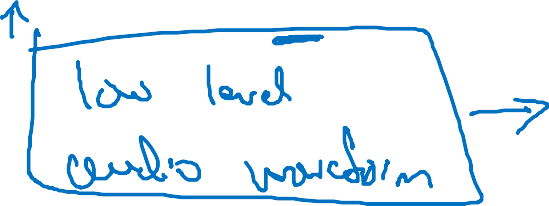 low level
audio waveform